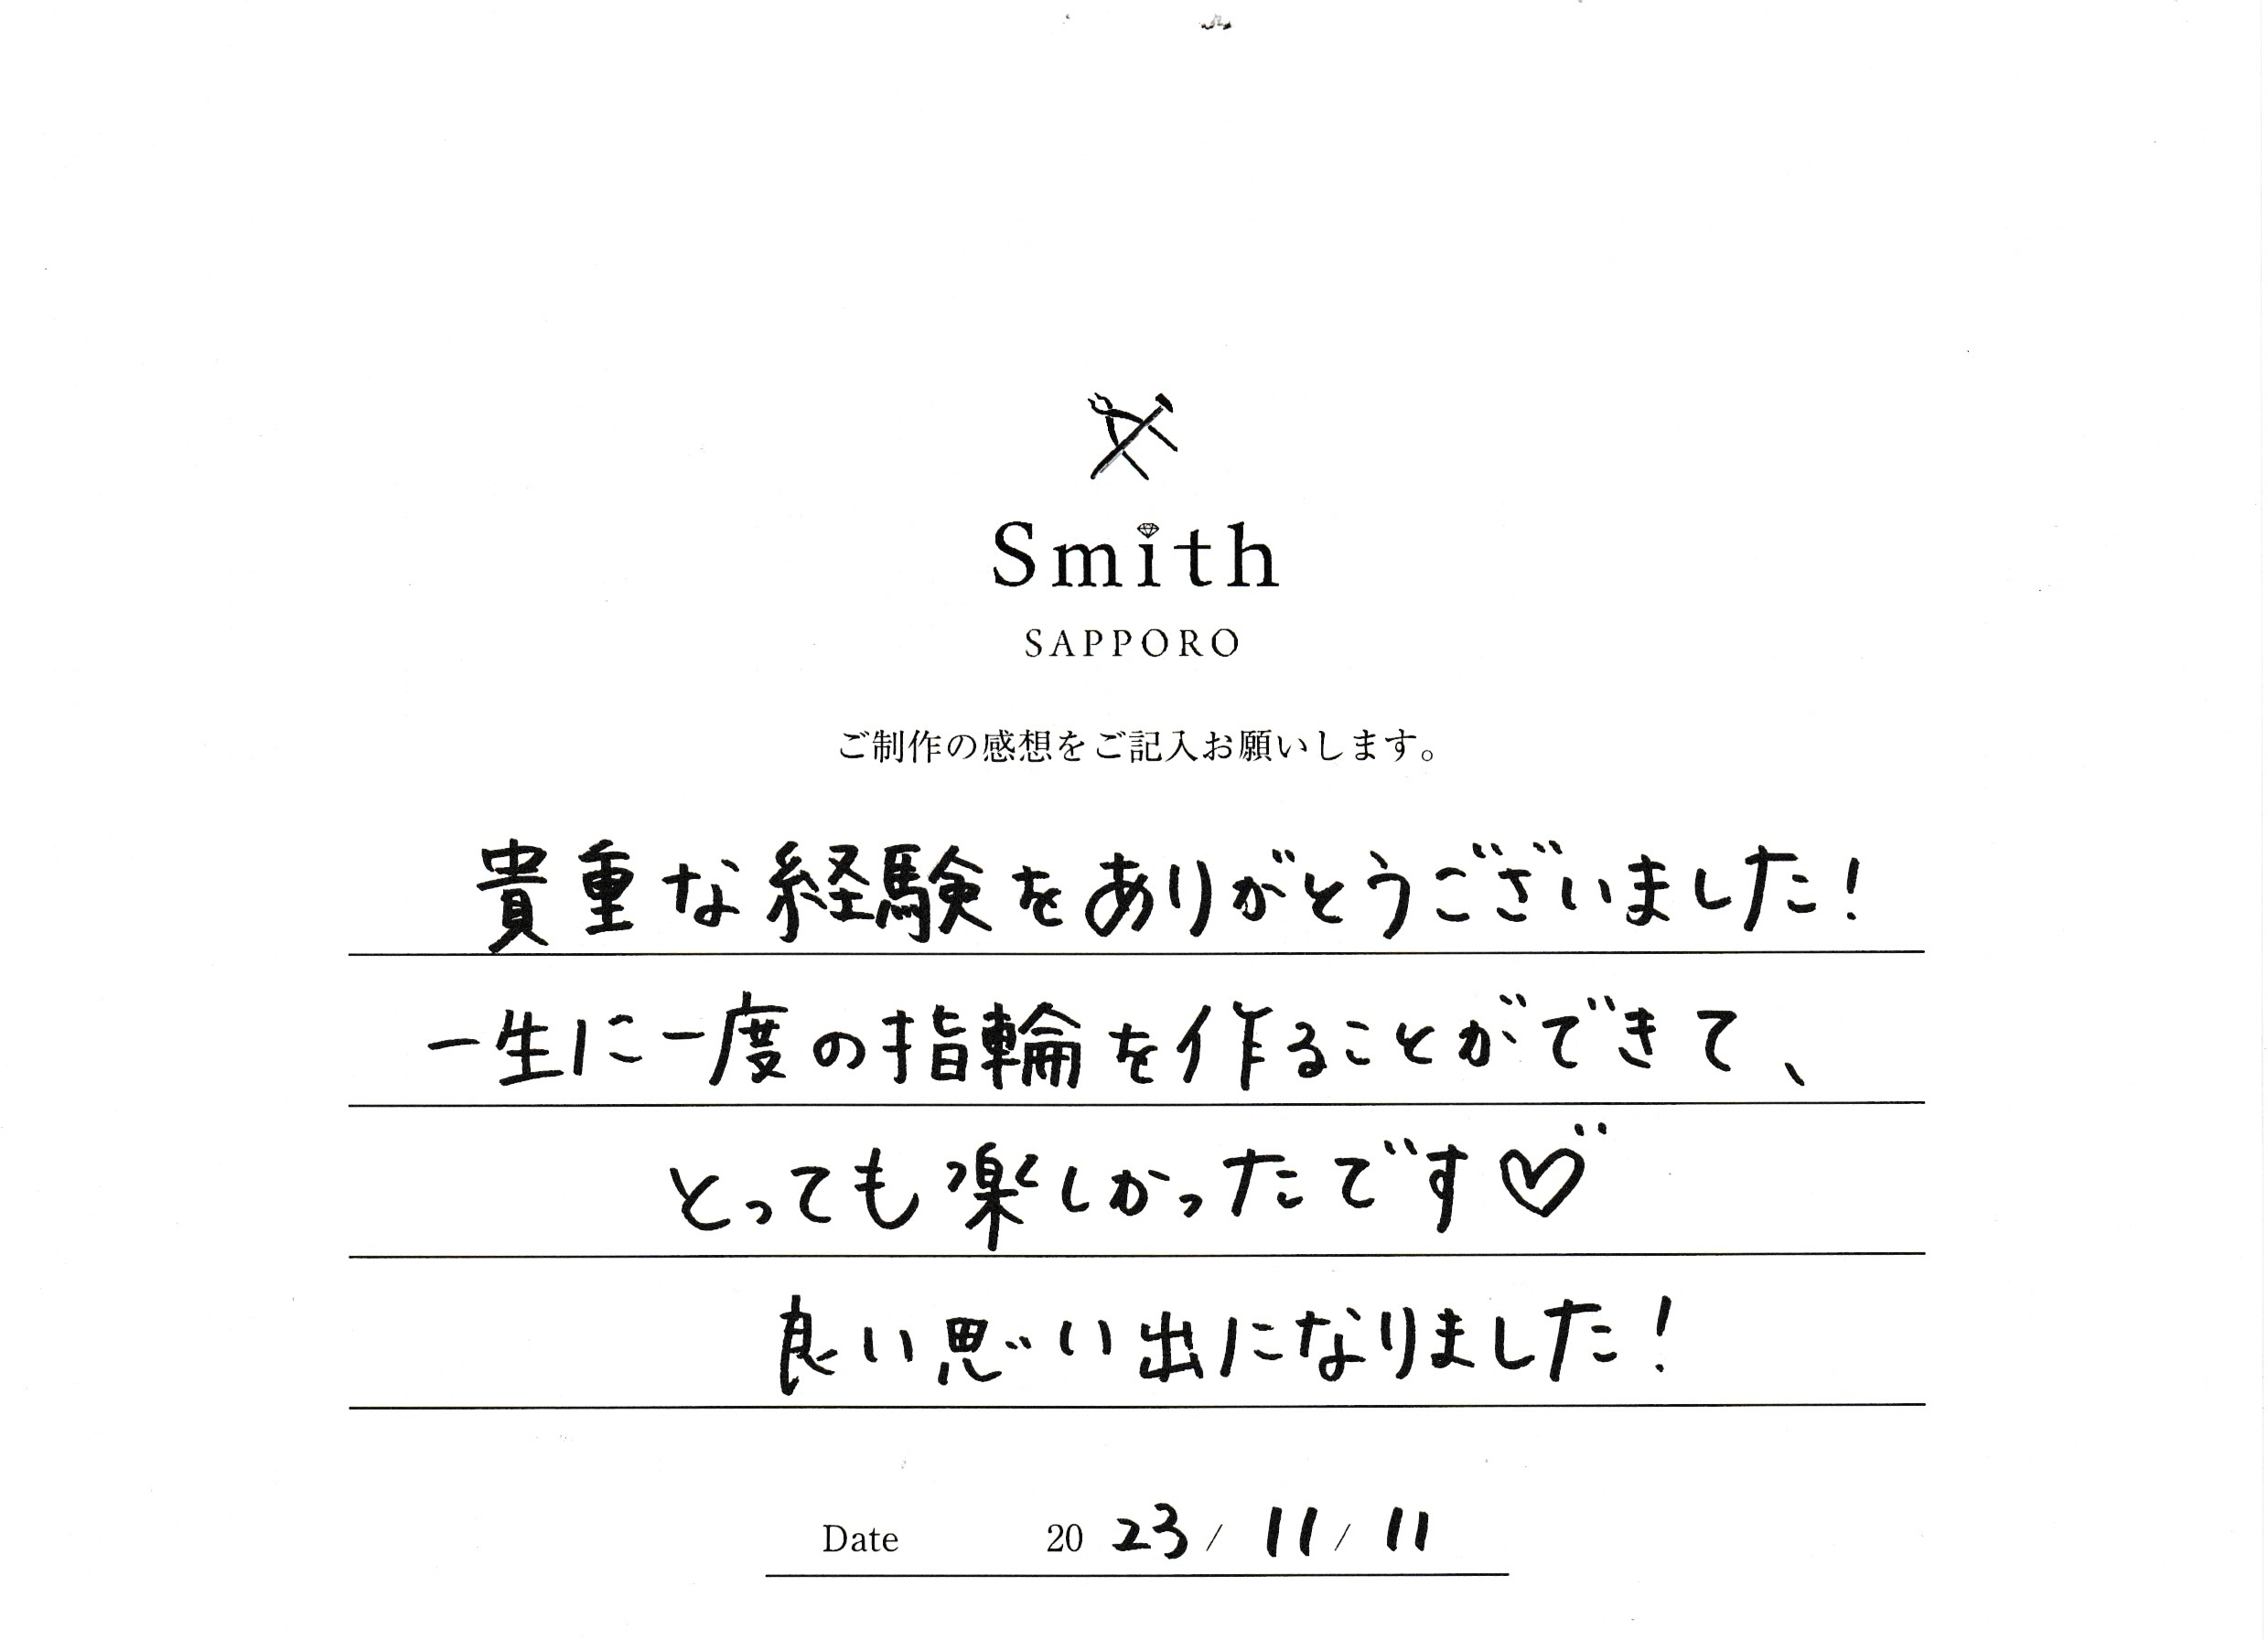 Smith
SAPPORO
ご制作の感想をご記入お願いします。
貴重な経験をありがとうございました!
一生に一度の指輪を作ることができて、
とっても楽しかったです♡
良い思い出になりました!
Date 2023/11/11